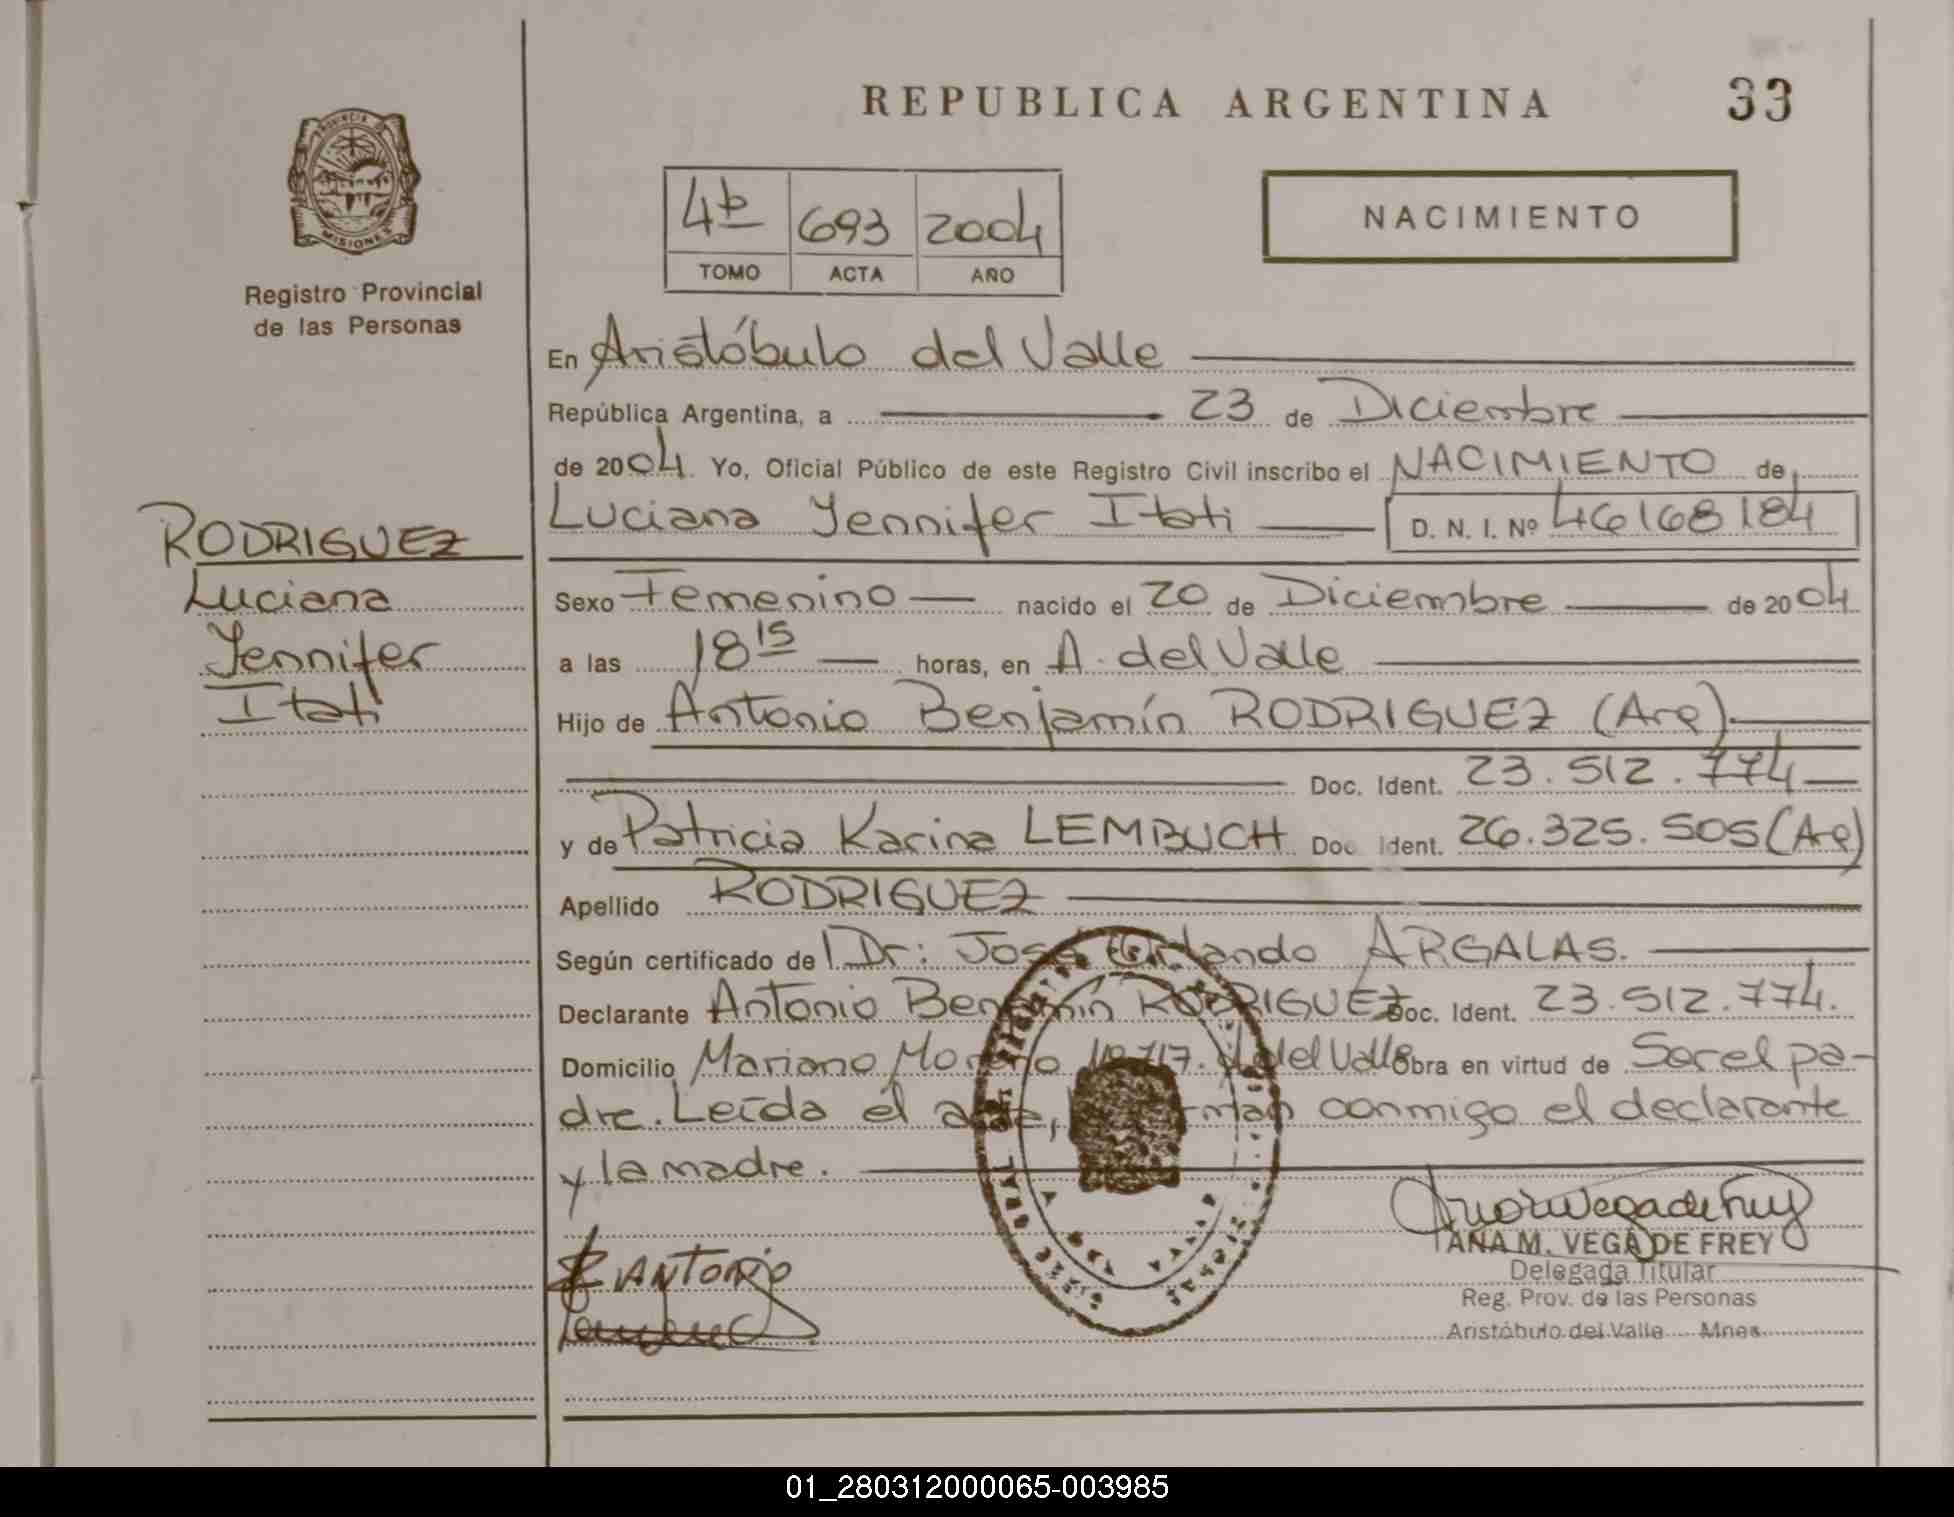 REPUBLICA ARGENTINA
33
PROVINCIA DE
MISIONES
Registro Provincial
de las Personas
4b 693 2004
TOMO ACTA AÑO
NACIMIENTO
En Aristóbulo del Valle
República Argentina, a 23 de Diciembre
de 2004. Yo, Oficial Público de este Registro Civil inscribo el NACIMIENTO de
Luciana Yennifer Itati D. N. I. Nº 46168184
RODRIGUEZ
Luciana
Yennifer
Itati
Sexo Femenino nacido el 20 de Diciembre de 2004
a las 18 15 horas, en A. del Valle
Hijo de Antonio Benjamín RODRIGUEZ (Arg)
Doc. Ident. 23.512.774
y de Patricia Karina LEMBUCH Doc. Ident. 26.325.505 (Arg)
Apellido RODRIGUEZ
Según certificado de Dr: José Orlando ARGALAS.
Declarante Antonio Benjamín RODRIGUEZ Doc. Ident. 23.512.774.
Domicilio Mariano Moreno Nº 717. A. del Valle Obra en virtud de Ser el pa-
dre. Leída el acta, firman conmigo el declarante
y la madre.
ANTONIO
ANA M. VEGA DE FREY
Delegada Titular
Reg. Prov. de las Personas
Aristóbulo del Valle - Mnes.
01_280312000065-003985